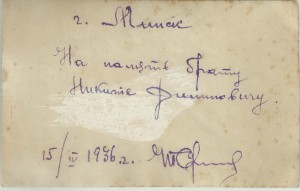 г. Минск
На память брату
Никите Филипповичу.
15/IV 1936 г.